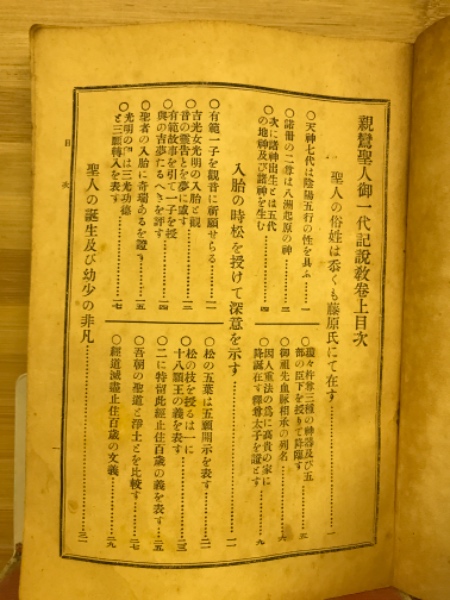 親鸞聖人御一代記說教卷上目次
聖人の俗姓は忝くも藤原氏にて在す……一
〇天神七代は陰陽五行の性を具ふ……一
〇諾冊の二尊は八洲起原の神……三
〇次に諸神出生とは五代
の地神及び諸神を生む……四
〇瓊々杵尊三種の神器及び五
部の臣下を授りて降臨す……五
〇御祖先血脉相承の列名……六
〇因人重法の爲に高貴の家に
降誕在す釋尊太子を證とす……九
入胎の時松を授けて深意を示す……一一
〇有範一子を觀音に祈願せらる……一一
〇吉光女光明の入胎と觀
音の靈告とを夢に感す……一三
〇有範故事を引て一子を授
與の吉夢たるへきを評す……一四
〇聖者の入胎に奇瑞あるを證す……一五
〇光明の は三光功德
と三願轉入を表す……一七
〇松の五葉は五願開示を表す……二一
〇松の枝を授るは一に
十八願王の義を表す……二三
〇二に特留此經止住百歲の義を表す……二五
〇吾朝の聖道と淨土とを比較す……二七
〇經道滅盡止住百歲の文義……二九
聖人の誕生及び幼少の非凡……三一
目次